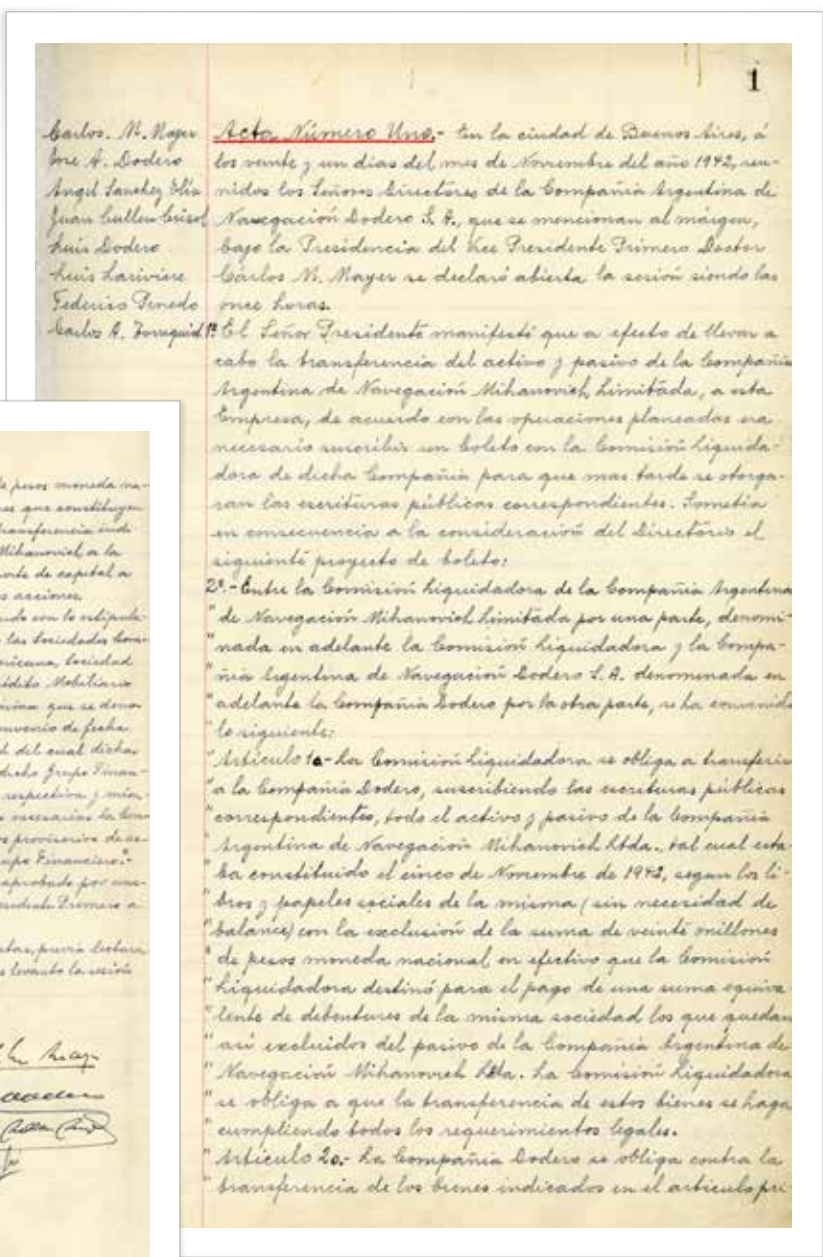 1
Carlos. M. Mayer
José A. Dodero
Angel Sanchez Elía
Juan Cullen Crisol
Luis Dodero
Luis Lariviere
Federico Pinedo
Carlos A. Tornquist
Acta Número Uno.- En la ciudad de Buenos Aires, á
los veinte y un dias del mes de Noviembre del año 1942, reu-
nidos los Señores Directores de la Compañia Argentina de
Navegación Dodero S. A., que se mencionan al márgen,
bajo la Presidencia del Vice Presidente Primero Doctor
Cárlos M. Mayer se declaró abierta la sesión siendo las
once horas.
1º El Señor Presidente manifestó que a efecto de llevar a
cabo la transferencia del activo y pasivo de la Compañia
Argentina de Navegación Mihanovich Limitada, a esta
Empresa, de acuerdo con las operaciones planeadas era
necesario suscribir un boleto con la Comisión Liquida-
dora de dicha Compañia para que mas tarde se otorga-
ran las escrituras públicas correspondientes. Sometia
en consecuencia a la consideración del Directorio el
siguiente proyecto de boleto:
2º.- Entre la Comisión Liquidadora de la Compañia Argentina
" de Navegación Mihanovich Limitada por una parte, denomi-
" nada en adelante la Comisión Liquidadora y la Compa-
" ñia Argentina de Navegación Dodero S. A. denominada en
" adelante la Compañia Dodero por la otra parte, se ha convenido
" lo siguiente:
" Artículo 1o- La Comisión Liquidadora se obliga a transferir
" a la Compañia Dodero, suscribiendo las escrituras públicas
" correspondientes, todo el activo y pasivo de la Compañia
" Argentina de Navegación Mihanovich Ltda., tal cual esta-
" ba constituido el cinco de Noviembre de 1942, segun los li-
" bros y papeles sociales de la misma (sin necesidad de
" balance) con la exclusión de la suma de veinte millones
" de pesos moneda nacional en efectivo que la Comisión
" Liquidadora destinó para el pago de una suma equiva-
" lente de debentures de la misma sociedad los que quedan
" así excluidos del pasivo de la Compañia Argentina de
" Navegación Mihanovich Ltda. La Comisión Liquidadora
" se obliga a que la transferencia de estos bienes se haga
" cumpliendo todos los requerimientos legales.
" Artículo 2o.- La Compañia Dodero se obliga contra la
" transferencia de los bienes indicados en el articulo pri-
de pesos moneda na-
que constituyen
transferencia
Mihanovich a la
de capital a
acciones.
con lo estipula-
las Sociedades Com-
Sociedad
Crédito Mobiliario
que se deno-
convenio de fecha
del cual dicha
dicho Grupo Finan-
respectiva y
necesarias la
provisorios de
Grupo Financiero."
aprobado por
Presidente Primero a
previa lectura
levantó la sesión